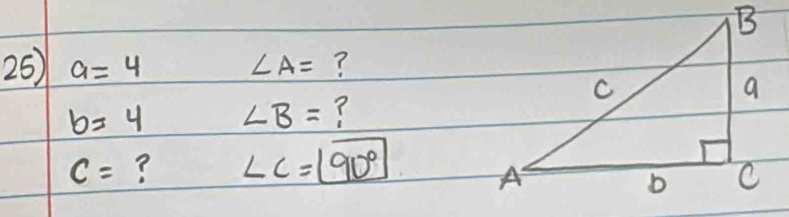 25) a = 4 ∠A = ?
b = 4 ∠B = ?
c = ? ∠C = 90°
B
c
a
A
b
C